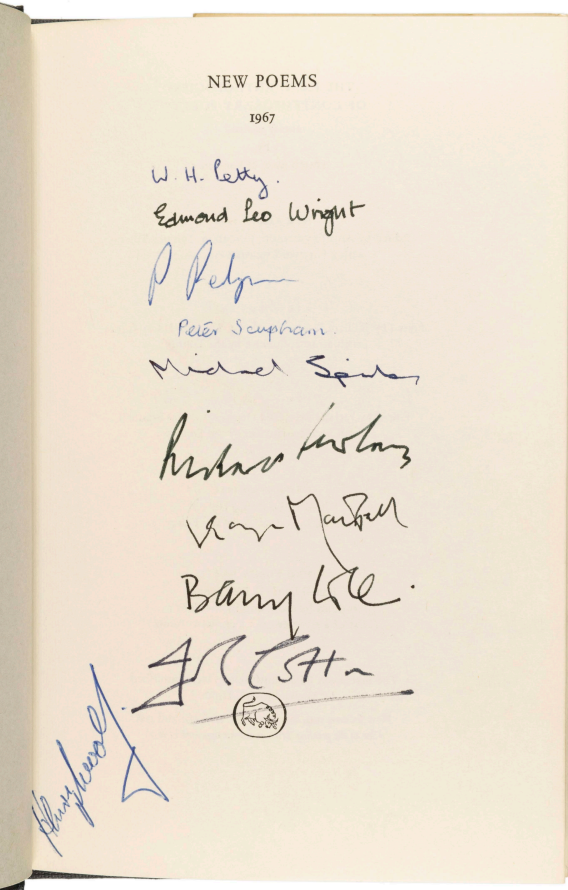 NEW POEMS
1967
W. H. Petty.
Edmond Leo Wright
P Redgrove
Peter Scupham.
Michael
Richard
George MacBeth
Barry Cole.
John Cotton